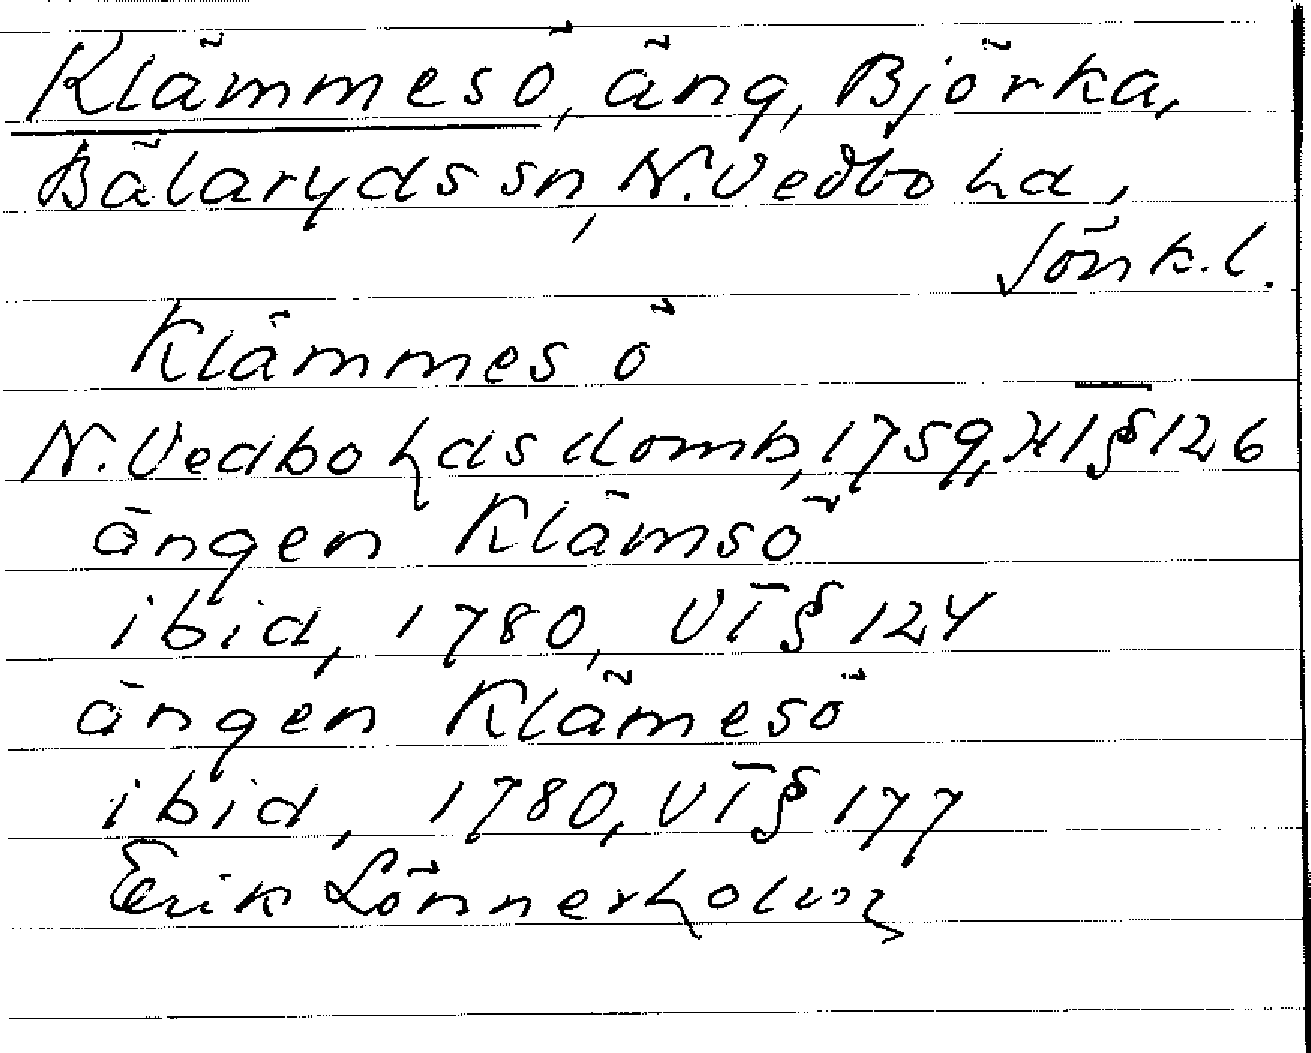 Klämmesö, äng, Björka,
Bälaryds sn, N. Vedbo hd,
Jönk. l.
Klämmes ö
N. Vedbo hds domb, 1759, XI § 126
ängen Klämsö
ibid, 1780, VI § 124
ängen Klämesö
ibid, 1780, VI § 177
Erik Lönnerholm